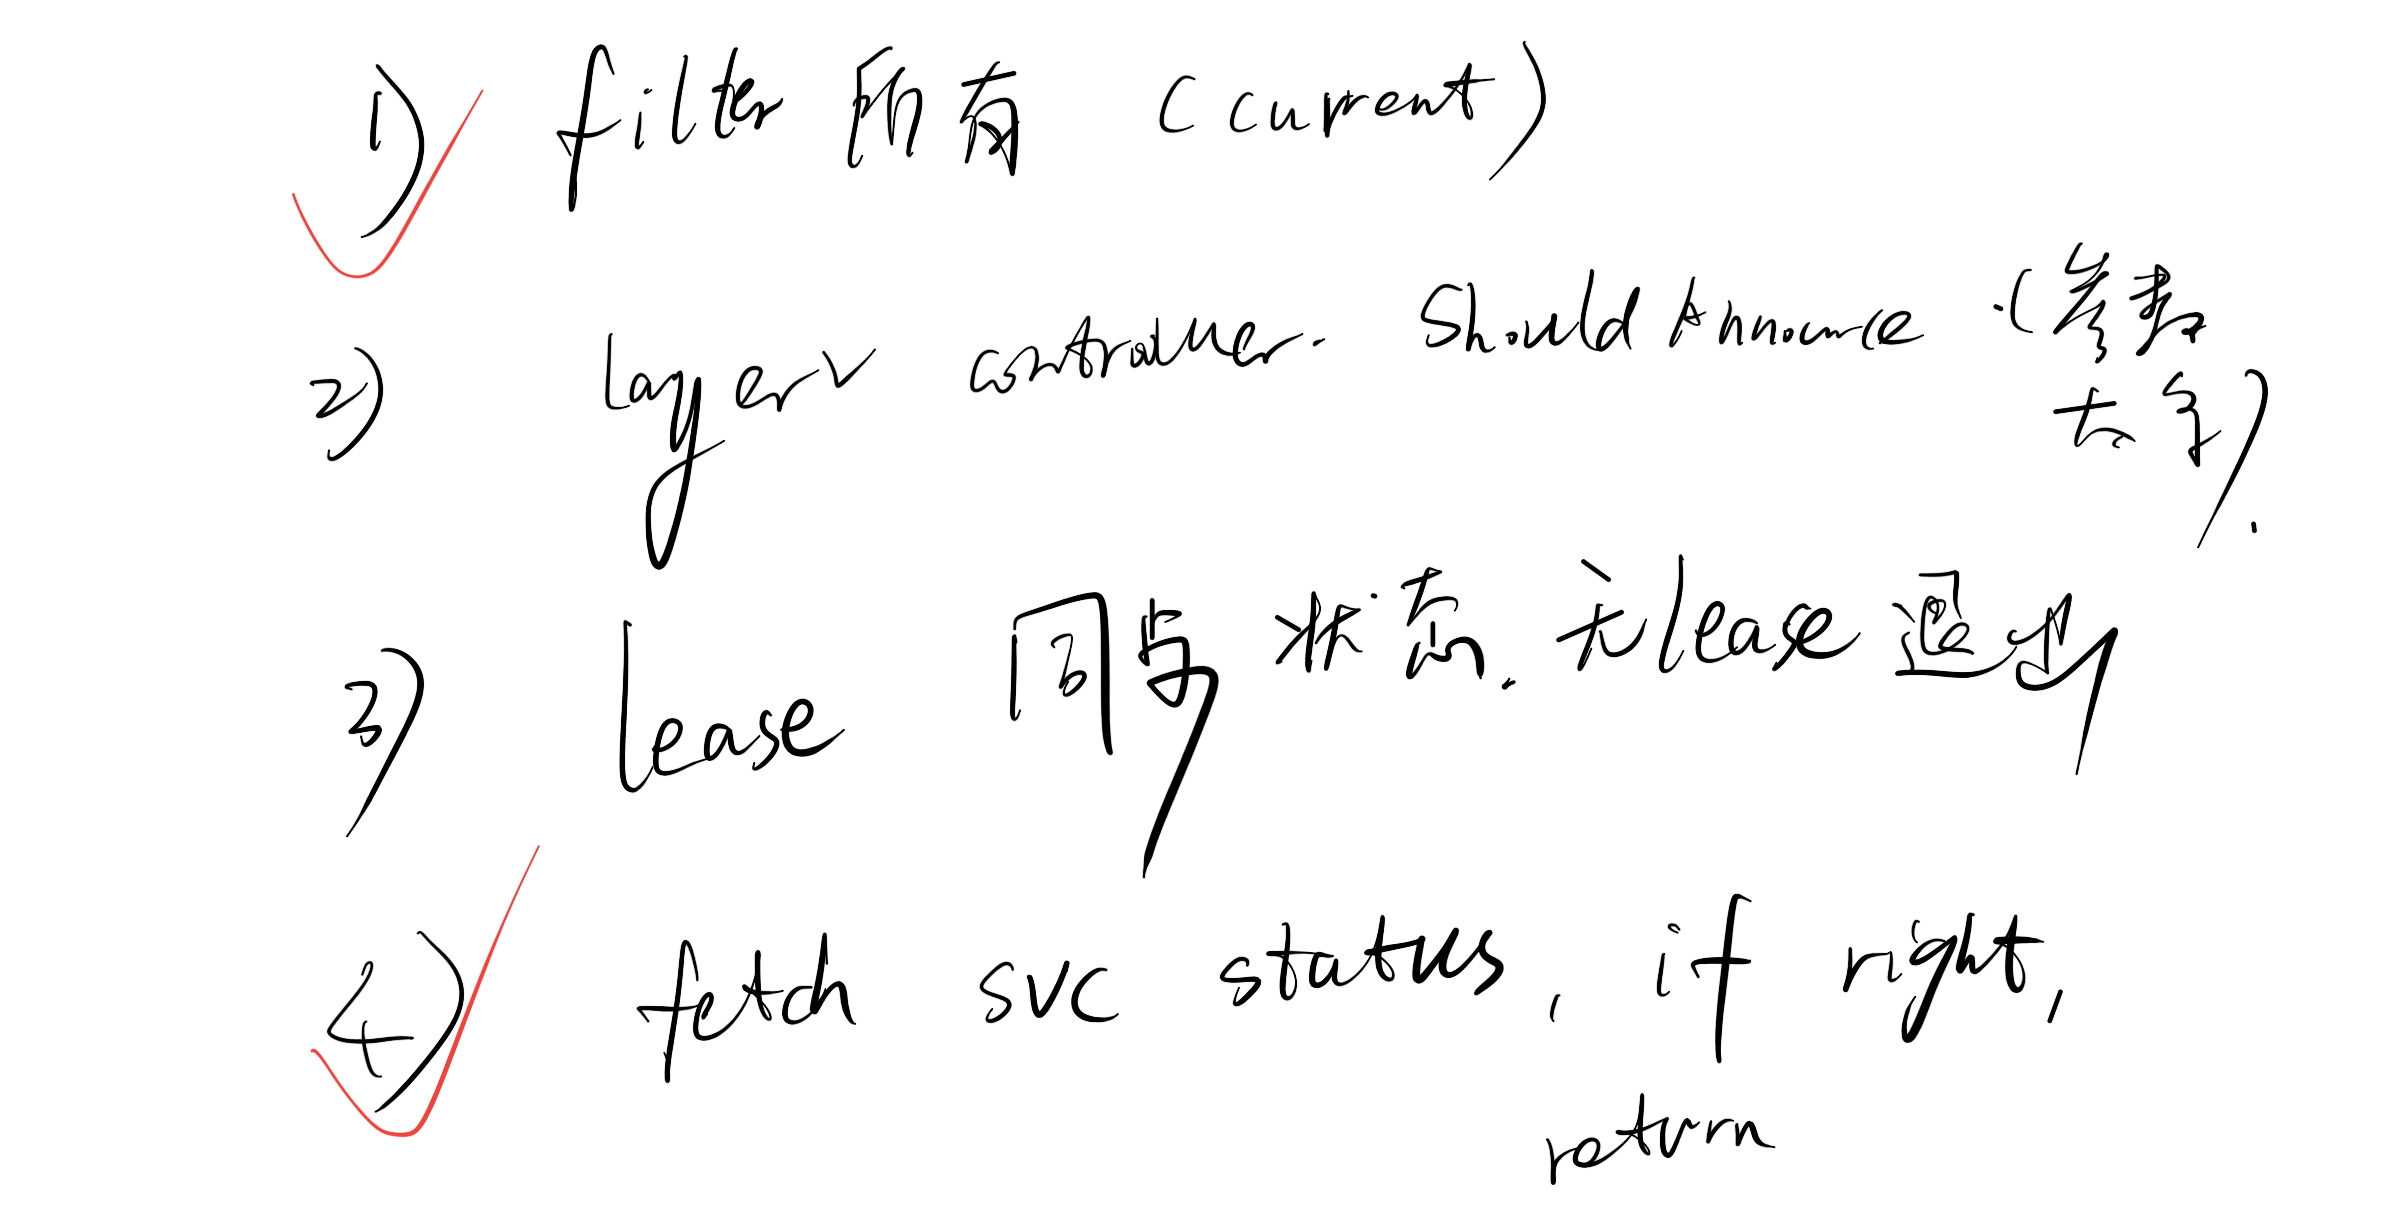 1) filter 所有 (current)
2) layer controller. ShouldAnnounce (参数
太多).
3) lease 同步状态. 无lease 退出
4) fetch svc status, if right,
return